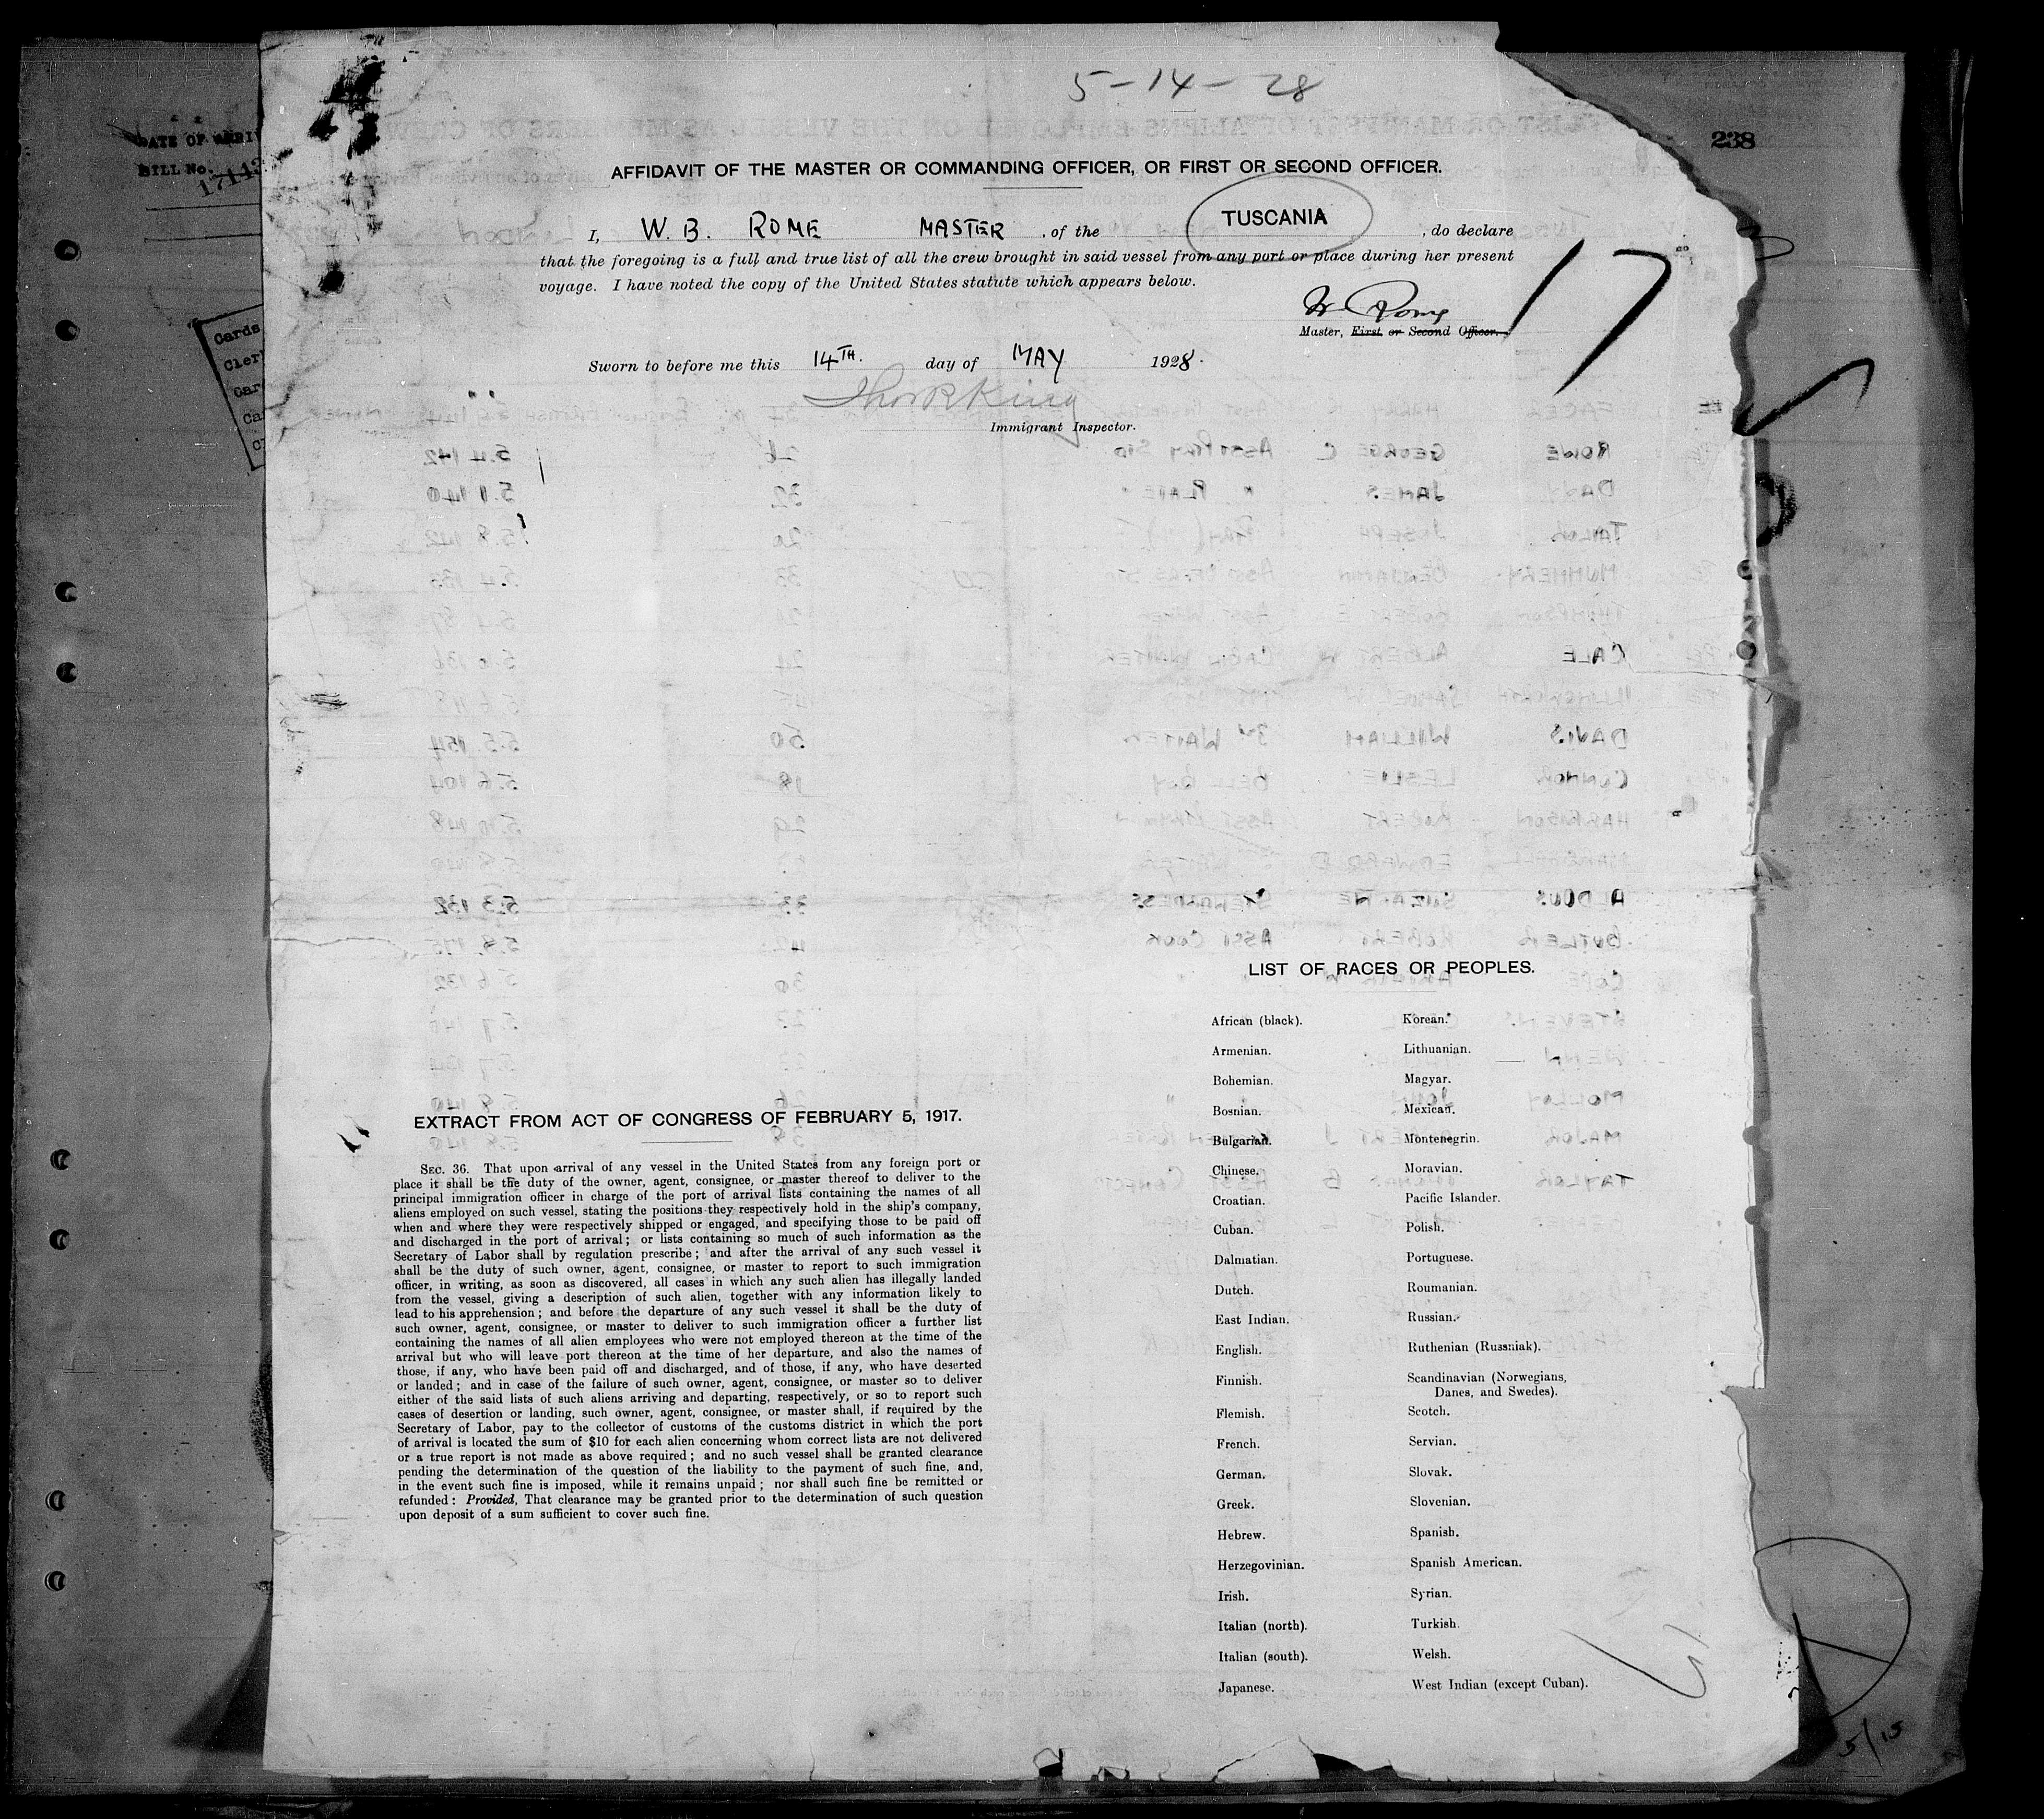 5-14-28
238
DATE OF ARRIV
BILL No.
AFFIDAVIT OF THE MASTER OR COMMANDING OFFICER, OR FIRST OR SECOND OFFICER.
I, W. B. ROME MASTER, of the TUSCANIA, do declare
that the foregoing is a full and true list of all the crew brought in said vessel from any port or place during her present
voyage. I have noted the copy of the United States statute which appears below.
W Rome
17
Master, First or Second Officer.
Sworn to before me this 14TH. day of MAY 1928.
Immigrant Inspector.
Cards
Cler
Car
Ca
LIST OF RACES OR PEOPLES.
African (black). Korean.
Armenian. Lithuanian.
Bohemian. Magyar.
Bosnian. Mexican.
Bulgarian. Montenegrin.
Chinese. Moravian.
Croatian. Pacific Islander.
Cuban. Polish.
Dalmatian. Portuguese.
Dutch. Roumanian.
East Indian. Russian.
English. Ruthenian (Russniak).
Finnish. Scandinavian (Norwegians,
Danes, and Swedes).
Flemish. Scotch.
French. Servian.
German. Slovak.
Greek. Slovenian.
Hebrew. Spanish.
Herzegovinian. Spanish American.
Irish. Syrian.
Italian (north). Turkish.
Italian (south). Welsh.
Japanese. West Indian (except Cuban).
EXTRACT FROM ACT OF CONGRESS OF FEBRUARY 5, 1917.
SEC. 36. That upon arrival of any vessel in the United States from any foreign port or
place it shall be the duty of the owner, agent, consignee, or master thereof to deliver to the
principal immigration officer in charge of the port of arrival lists containing the names of all
aliens employed on such vessel, stating the positions they respectively hold in the ship's company,
when and where they were respectively shipped or engaged, and specifying those to be paid off
and discharged in the port of arrival; or lists containing so much of such information as the
Secretary of Labor shall by regulation prescribe; and after the arrival of any such vessel it
shall be the duty of such owner, agent, consignee, or master to report to such immigration
officer, in writing, as soon as discovered, all cases in which any such alien has illegally landed
from the vessel, giving a description of such alien, together with any information likely to
lead to his apprehension; and before the departure of any such vessel it shall be the duty of
such owner, agent, consignee, or master to deliver to such immigration officer a further list
containing the names of all alien employees who were not employed thereon at the time of the
arrival but who will leave port thereon at the time of her departure, and also the names of
those, if any, who have been paid off and discharged, and of those, if any, who have deserted
or landed; and in case of the failure of such owner, agent, consignee, or master so to deliver
either of the said lists of such aliens arriving and departing, respectively, or so to report such
cases of desertion or landing, such owner, agent, consignee, or master shall, if required by the
Secretary of Labor, pay to the collector of customs of the customs district in which the port
of arrival is located the sum of $10 for each alien concerning whom correct lists are not delivered
or a true report is not made as above required; and no such vessel shall be granted clearance
pending the determination of the question of the liability to the payment of such fine, and,
in the event such fine is imposed, while it remains unpaid; nor shall such fine be remitted or
refunded: Provided, That clearance may be granted prior to the determination of such question
upon deposit of a sum sufficient to cover such fine.
17
5/15